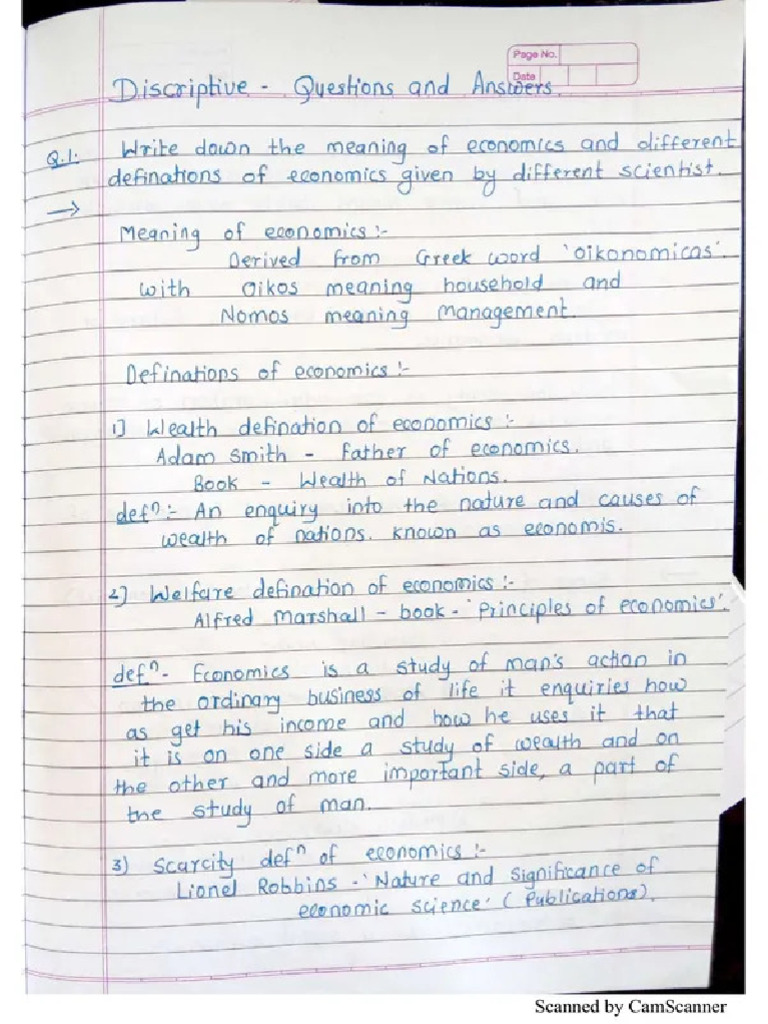 Page No.
Date
Discriptive - Questions and Answers.
Q.1. Write down the meaning of economics and different
definations of economics given by different scientist.
→
Meaning of economics :-
Derived from Greek word 'Oikonomicas'.
with Oikos meaning household and
Nomos meaning management.
Definations of economics :-
1) Wealth defination of economics :-
Adam Smith - Father of economics.
Book - Wealth of Nations.
defⁿ :- An enquiry into the nature and causes of
wealth of nations. known as economis.
2) Welfare defination of economics :-
Alfred Marshall - book - 'Principles of economics'.
defⁿ - Economics is a study of man's action in
the ordinary business of life it enquiries how
as get his income and how he uses it that
it is on one side a study of wealth and on
the other and more important side, a part of
the study of man.
3) Scarcity defⁿ of economics :-
Lionel Robbins - 'Nature and Significance of
economic science' (Publications).
Scanned by CamScanner